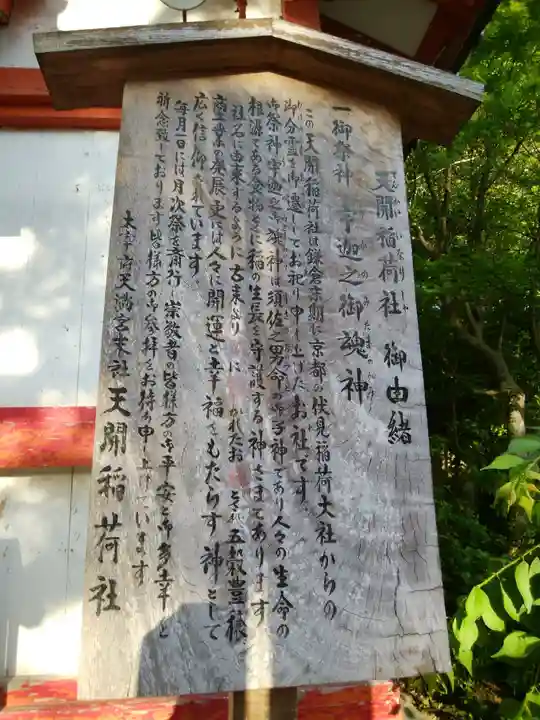 天開稲荷社 御由緒
一御祭神 宇迦之御魂神
この天開稲荷社は鎌倉末期に京都の伏見稲荷大社からの
御分霊を御遷してお祀り申し上げたお社です。
御祭神宇迦之御魂神は須佐之男命の御子神であり人々の生命の
根源である食物とくに稲の生長を守護する神さまであります
社名に由来するように古来より に かれたお 五穀豊穣
商工業の発展更には人々に開運と幸福をもたらす神として
広く信仰されています。
毎月一日には月次祭を斎行し崇敬者の皆様方の御平安と御多幸と
祈念致しております皆様方の御参拝をお待ち申し上げています
太宰府天満宮末社 天開稲荷社